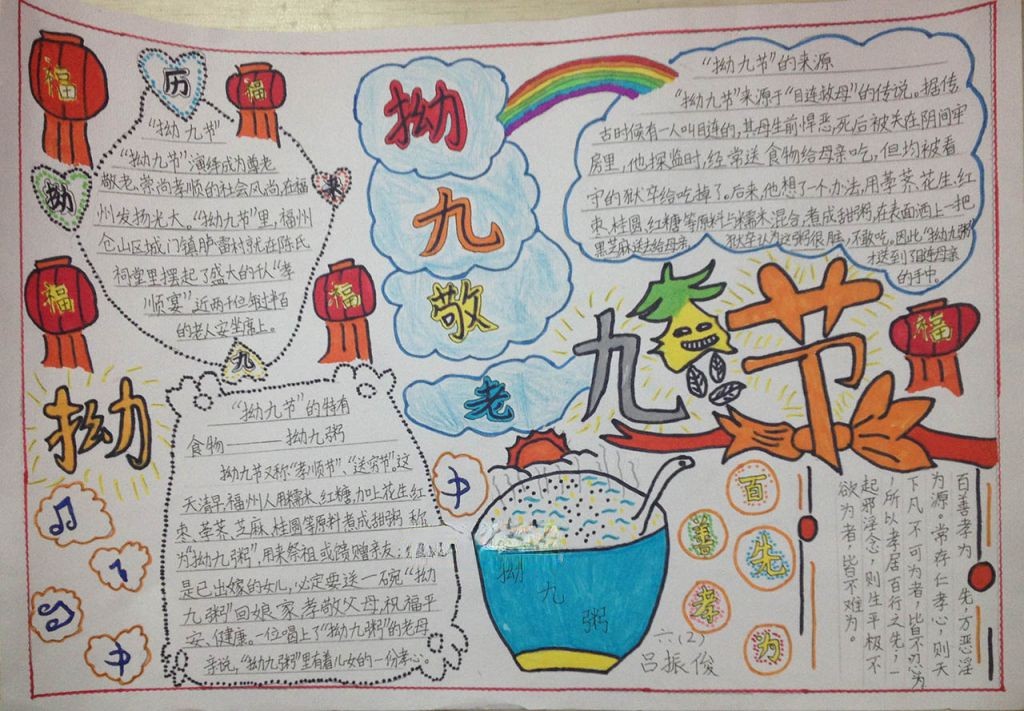 福
历
福
拗
来
九
“拗九节”
“拗九节”演绎成为尊老
敬老,崇尚孝顺的社会风尚,在福
州发扬光大。“拗九节”里,福州
仓山区城门镇胪雷村就在陈氏
祠堂里摆起了盛大的千人“孝
顺宴”近两千位年过半百
的老人安坐席上。
福
福
拗
九
敬
老
“拗九节”的来源
“拗九节”来源于“目连救母”的传说。据传
古时候有一人叫目连的,其母生前悍恶,死后被关在阴间牢
房里,他探监时,经常送食物给母亲吃,但均被看
守的狱卒给吃掉了。后来,他想了一个办法,用荸荠、花生、红
枣、桂圆、红糖等原料与糯米混合,煮成甜粥,在表面洒上一把
黑芝麻送去给母亲 狱卒认为这粥很脏,不敢吃。因此“拗九粥”
才送到了目连母亲
的手中。
拗
九
节
福
“拗九节”的特有
食物———拗九粥
拗九节又称“孝顺节”、“送穷节”,这
天清早,福州人用糯米、红糖,加上花生、红
枣、荸荠、芝麻、桂圆等原料煮成甜粥 称
为“拗九粥”,用来祭祖或馈赠亲友;
是已出嫁的女儿,必定要送一碗“拗
九粥”回娘家,孝敬父母,祝福平
安、健康。一位喝上了“拗九粥”的老母
亲说,“拗九粥”里有着儿女的一份孝心。
拗
九
粥
六(2)
吕振俊
百
善
孝
为
先
百善孝为先,万恶淫
为源。常存仁孝心,则天
下凡不可为者,皆不忍为
,所以孝居百行之先;一
起邪淫念,则生平极不
欲为者,皆不难为。